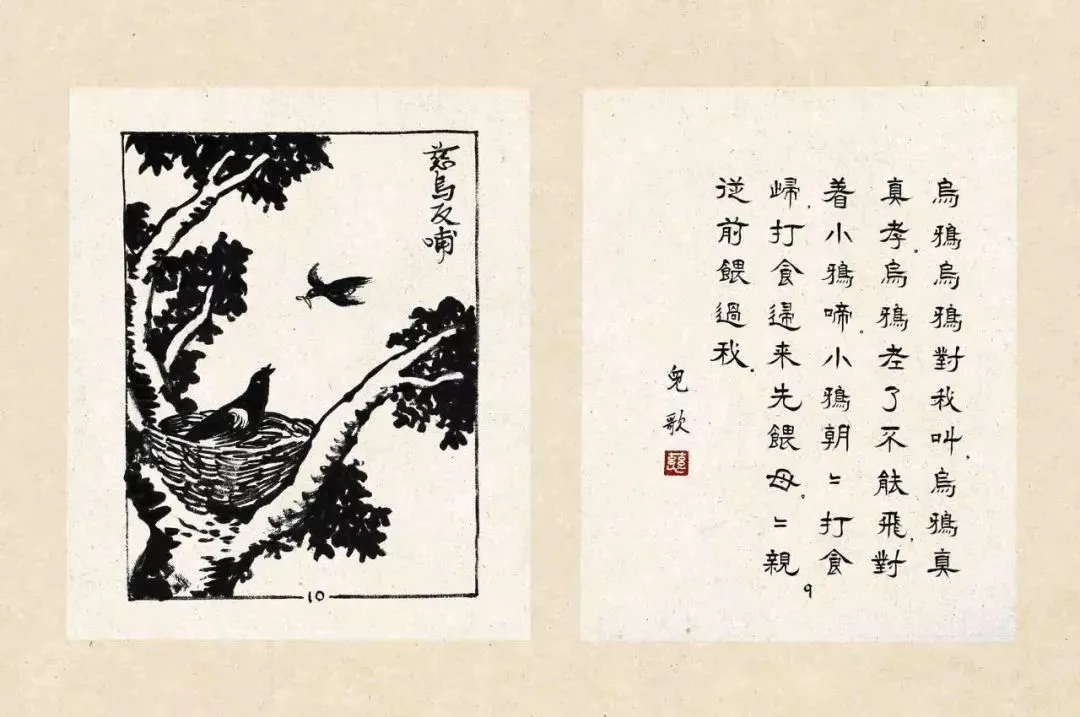 慈烏反哺
10
烏鴉烏鴉對我叫,烏鴉真
真孝.烏鴉老了不能飛,對
着小鴉啼.小鴉朝〻打食
歸.打食歸来先餵母.〻親
從前餵過我.
兒歌
9